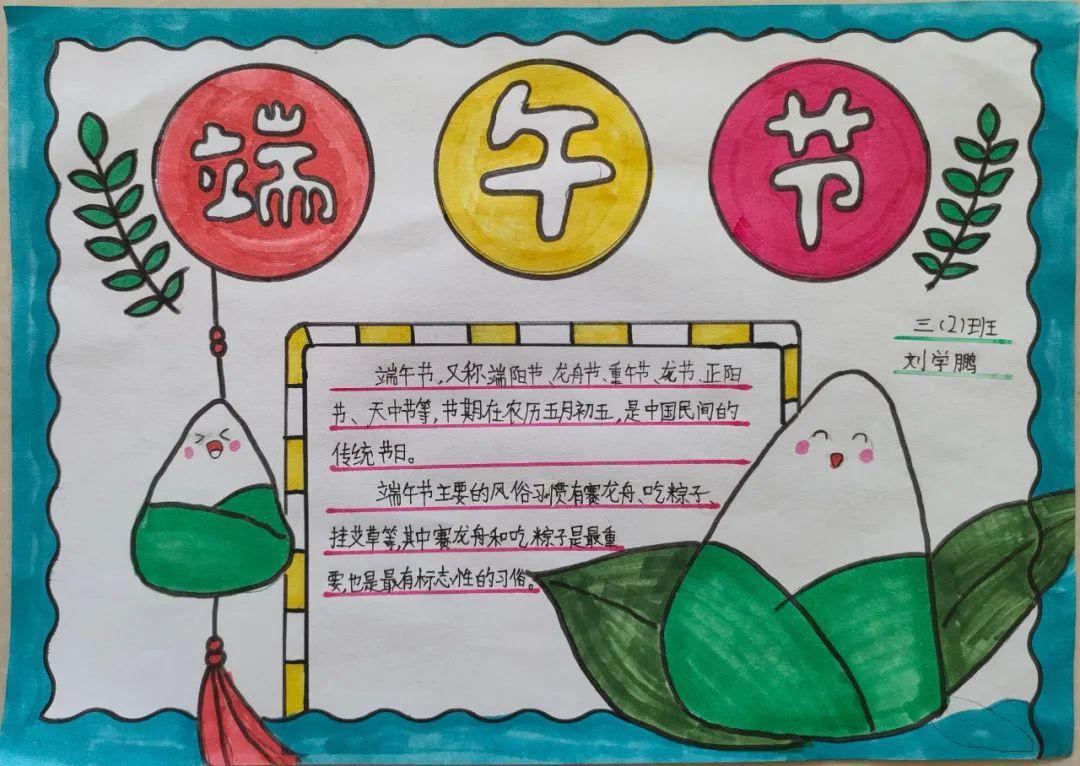 端午节
三(2)班
刘学鹏
端午节,又称端阳节、龙舟节、重午节、龙节、正阳
节、天中节等,节期在农历五月初五,是中国民间的
传统节日。
端午节主要的风俗习惯有赛龙舟、吃粽子、
挂艾草等,其中赛龙舟和吃粽子是最重
要,也是最有标志性的习俗。